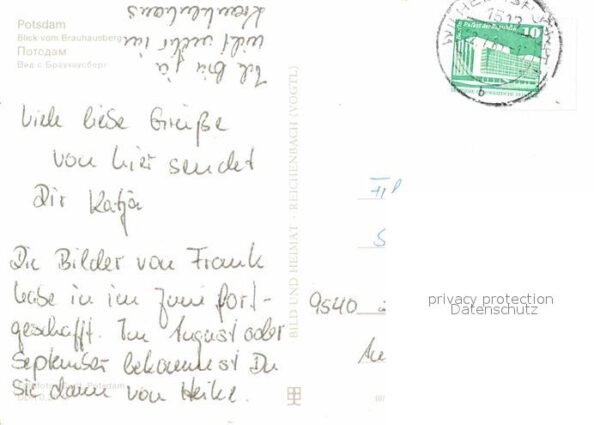 Potsdam
Blick vom Brauhausberg
Потсдам
Вид с Браухаусберг
Ich bin ja
wohl mehr im
Krankenhaus
Viele liebe Grüße
von hier sendet
Dir Katja
Die Bilder von Frank
habe in im Juni fort-
geschafft. Im August oder
September bekommst Du
Sie dann von Heike.
BILD UND HEIMAT · REICHENBACH (VOGTL)
10
9540
privacy protection
Datenschutz